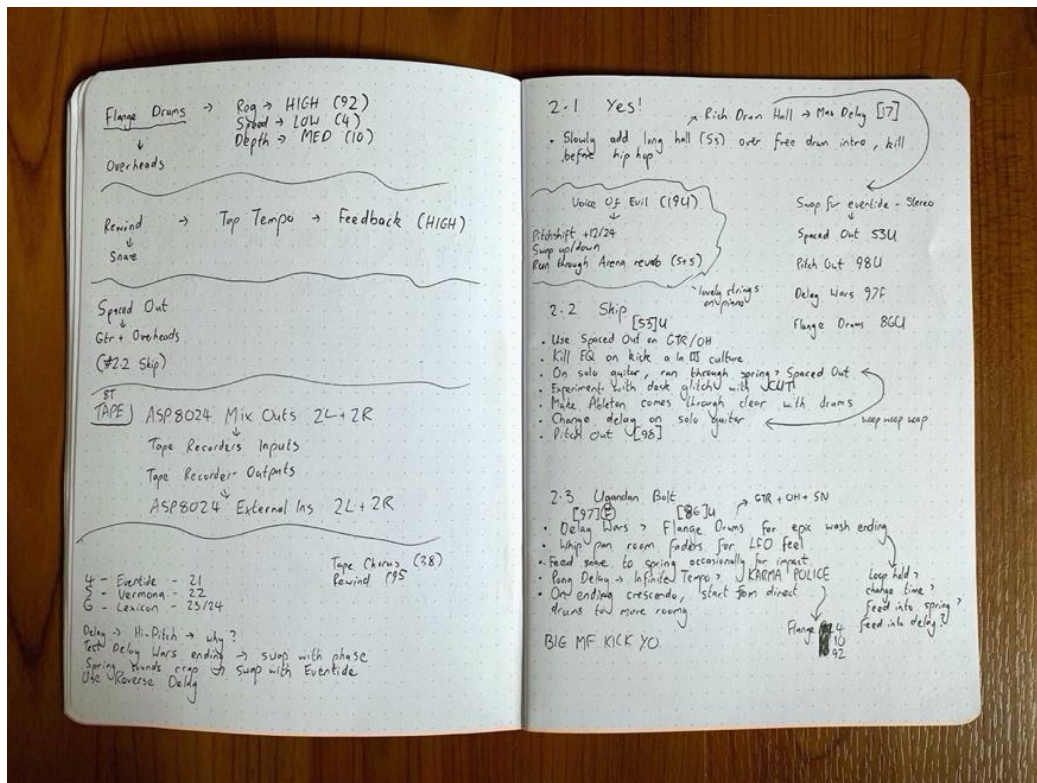 Flange Drums → Reg → HIGH (92)
Speed → LOW (4)
Depth → MED (10)
↓
Overheads
Rewind → Tap Tempo → Feedback (HIGH)
↓
Snare
Spaced Out
↓
Gtr + Overheads
(#2.2 Skip)
8T
TAPE] ASP8024 Mix Outs 2L+2R
↓
Tape Recorders Inputs
Tape Recorder Outputs
↓
ASP8024 External Ins 2L+2R
Tape Chorus (38)
Rewind (95
4 - Eventide - 21
5 - Vermona - 22
6 - Lexicon - 23/24
Delay → Hi-Pitch → why?
Test Delay Wars ending → swap with phase
Spring sounds crap → swap with Eventide
Use Reverse Delay
2.1 Yes!
→ Rich Drum Hall → Max Delay [17]
• Slowly add long hall (5s) over free drum intro, kill
before hip hop
Voice Of Evil (19U)
↓
Pitchshift +12/24
Swap up/down
Run through Arena reverb (5+s)
lovely strings
on piano
Swap for eventide - Stereo
↓
Spaced Out 53U
Pitch Out 98U
Delay Wars 97F
Flange Drums 86U
2.2 Skip
[53]U
• Use Spaced Out on GTR/OH
• Kill EQ on kick a la DJ culture
• On solo guitar, run through spring > Spaced Out
• Experiment with desk glitch with CUT!
• Make Ableton comes through clear with drums
• Change delay on solo guitar
woop woop woop
• Pitch Out [98]
2.3 Ugandan Bolt
→ GTR + OH + SN
[97]F [86]U
• Delay Wars > Flange Drums for epic wash ending
• Whip pan room faders for LFO feel
• Feed snare to spring occasionally for impact
• Pong Delay → Infinite Tempo > KARMA POLICE
• On ending crescendo, start from direct
drums to more roomy
Loop hold?
change time?
Feed into spring?
Feed into delay?
Flange 4
10
92
BIG MF KICK YO